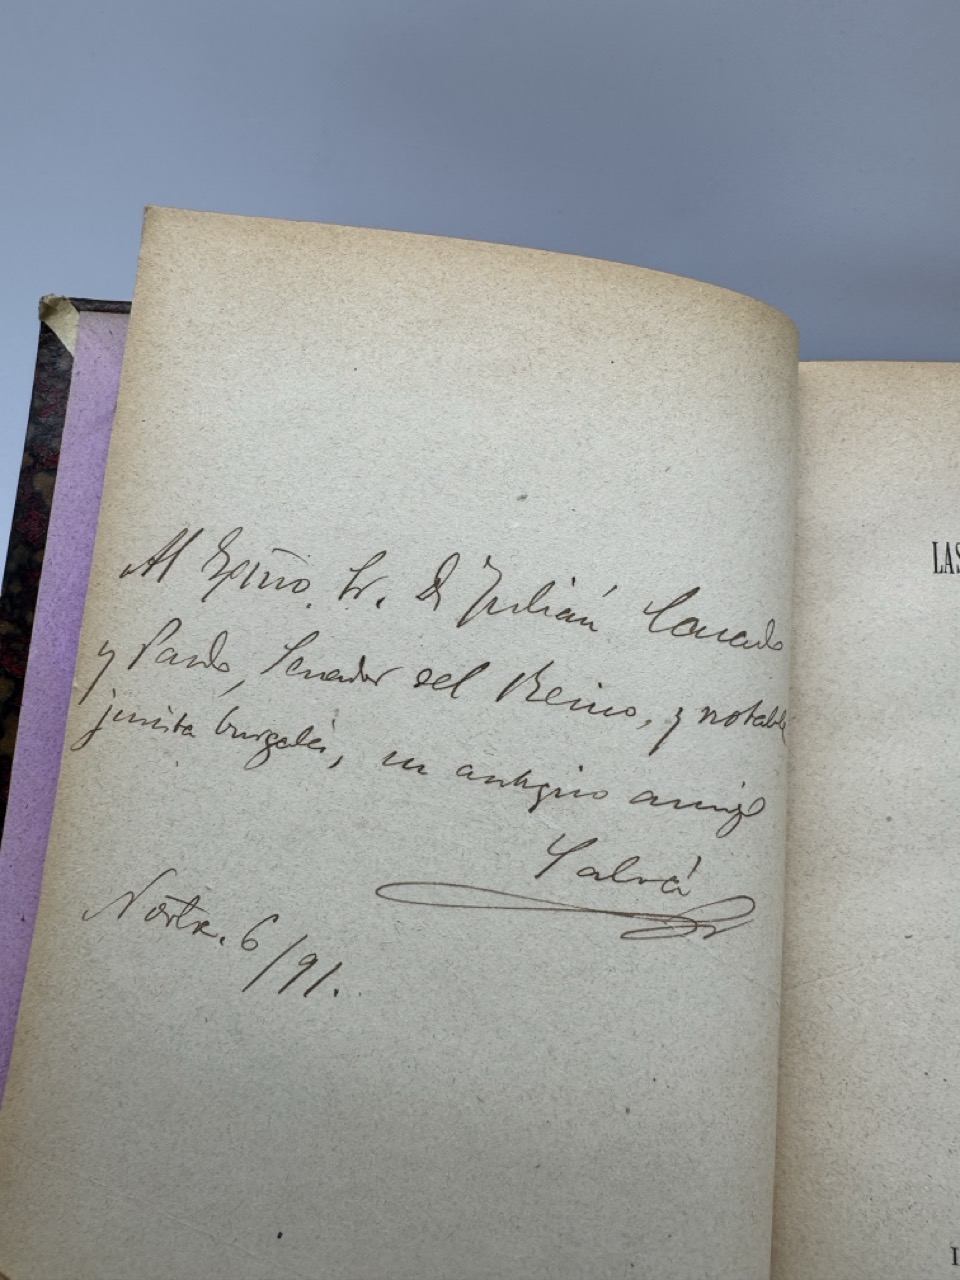 Al Exmo. Sr. D Julián Casado
y Pardo, Senador del Reino, y notable
jurista burgalés, su antiguo amigo
Salvá
Novbre. 6/91.
LAS